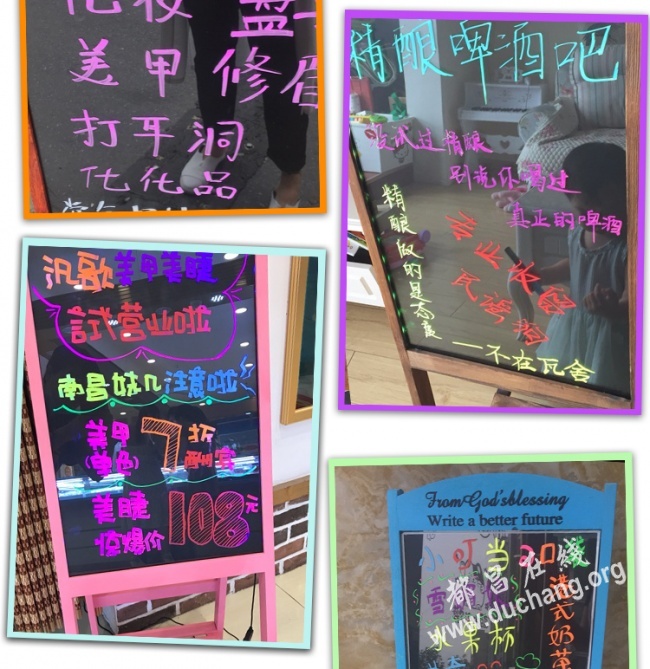 化妆
美甲修眉
打耳洞
化化品
精酿啤酒吧
没试过精酿
别说你喝过
真正的啤酒
精酿做的是态度
专业火
—不在瓦舍
汎歌美甲美睫
試营业啦
南昌妹儿注意啦
美甲
(单色)
7折
美睫
惊爆价
108元
From God's blessing
Write a better future
小叮当
雪
水果杯
港式奶茶
都昌在线
www.duchang.org